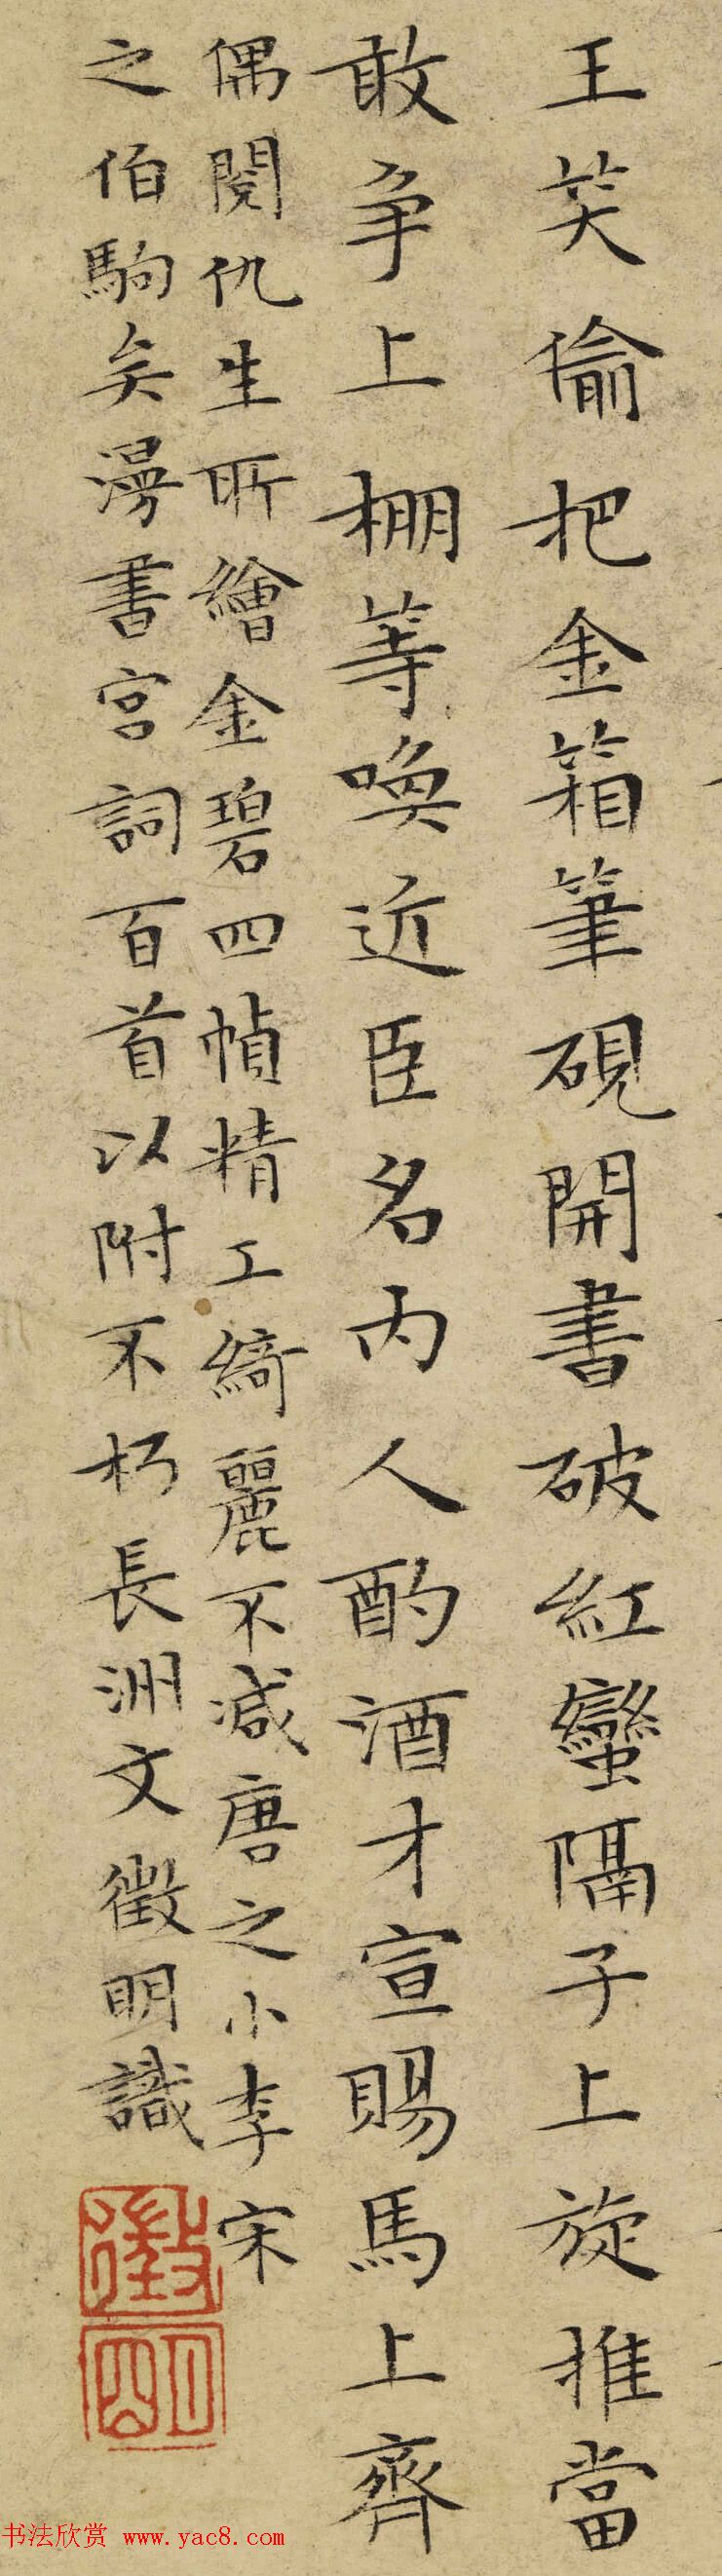 王笑偷把金箱筆硯開書破紅蠻隔子上旋推當
敢争上棚等喚近臣名内人酌酒才宣賜馬上齊
偶閱仇生所繪金碧四幀精工綺麗不減唐之小李宋
之伯駒矣漫書宮詞百首以附不朽長洲文徵明識
徵明
书法欣赏 www.yac8.com